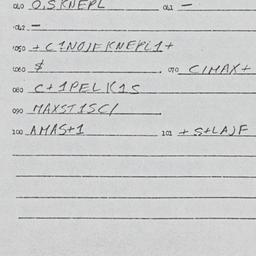 040 O,SKNEPL 041 -
042 -
050 + C1NOJFKNEPL1+
060 $ 070 C/MAX+
080 C+1PELK1S
090 MAXST1SC/
100 AMAS+1 101 +S+LAJF